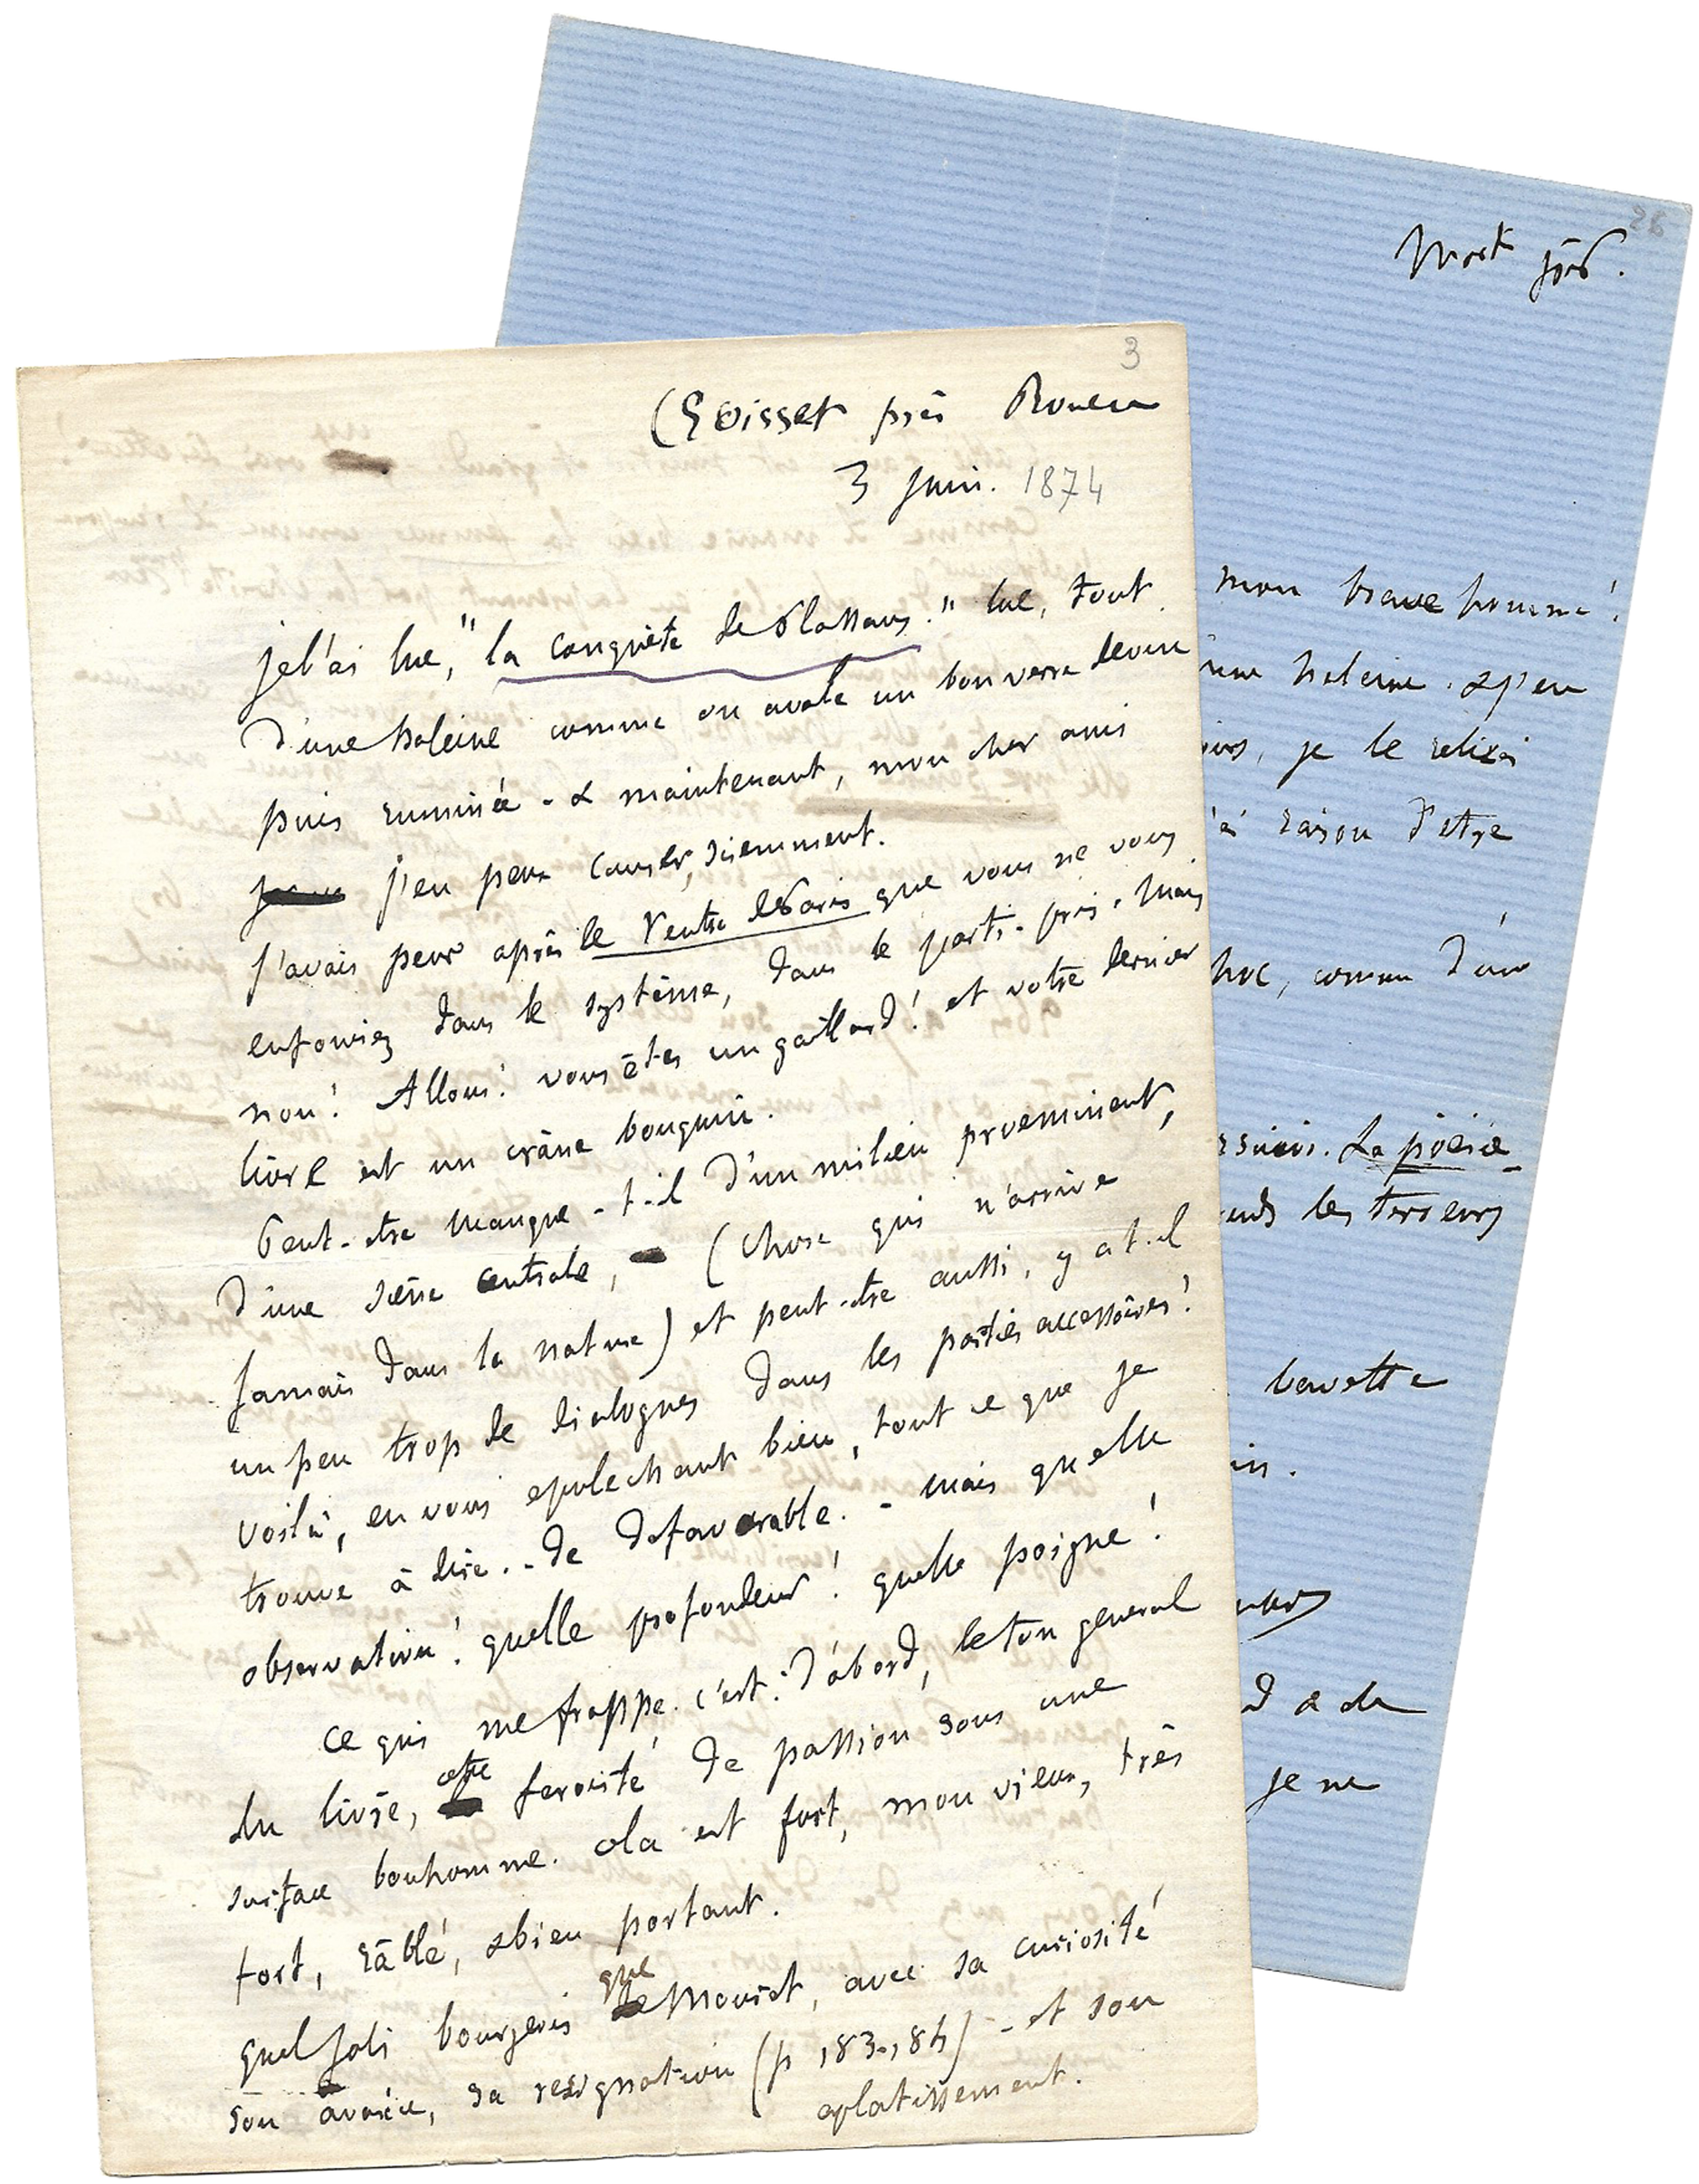 3
(Croisset près Rouen
3 juin. 1874
je l'ai lue, "la conquête de Plassans." lue, tout
d'une haleine comme on avale un bon verre de vin
puis ruminée - & maintenant, mon cher ami
j'en peux causer, sciemment.
j'avais peur après le Ventre de Paris que vous ne vous
enfouriez dans le système, dans le parti-pris. Mais
non! Allons! vous êtes un gaillard! et votre dernier
livre est un crâne bouquin.
Peut-être manque-t-il d'un milieu proeminent,
d'une scène centrale, (chose qui n'arrive
jamais dans la nature) et peut-être aussi, y a t-il
un peu trop de dialogues dans les parties accessoires!
voilà, en vous epluchant bien, tout ce que je
trouve à dire. - de defavorable. - mais quelle
observation! quelle profondeur! quelle poigne!
ce qui me frappe. c'est: d'abord, le ton general
du livre, cette ferocité de passion sous une
surface bonhomme. cela est fort, mon vieux, très
fort, râblé, & bien portant.
quel joli bourgeois que Mouret, avec sa curiosité
son avarice, sa resignation (p 183-184) - et son
aplatissement.
26
mon brave homme!
haleine. & j'en
je le relirai
raison d'etre
comme d'un
La poésie
les terreurs
bavette
je ne